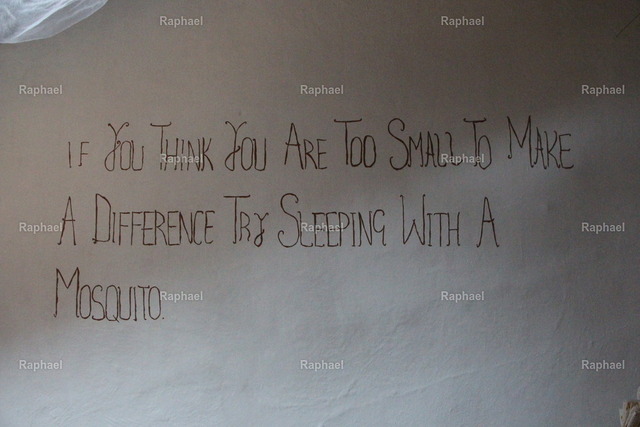 IF YOU THINK YOU ARE TOO SMALL TO MAKE
A DIFFERENCE TRY SLEEPING WITH A
MOSQUITO.
Raphael Raphael
Raphael Raphael Raphael
Raphael Raphael
Raphael Raphael Raphael
Raphael Raphael
Raphael Raphael Raphael